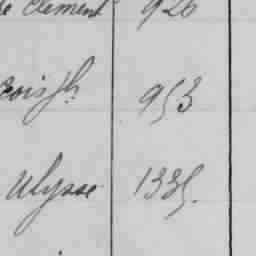 e Clement 926
çois Jh 953
Ulysse 1335.